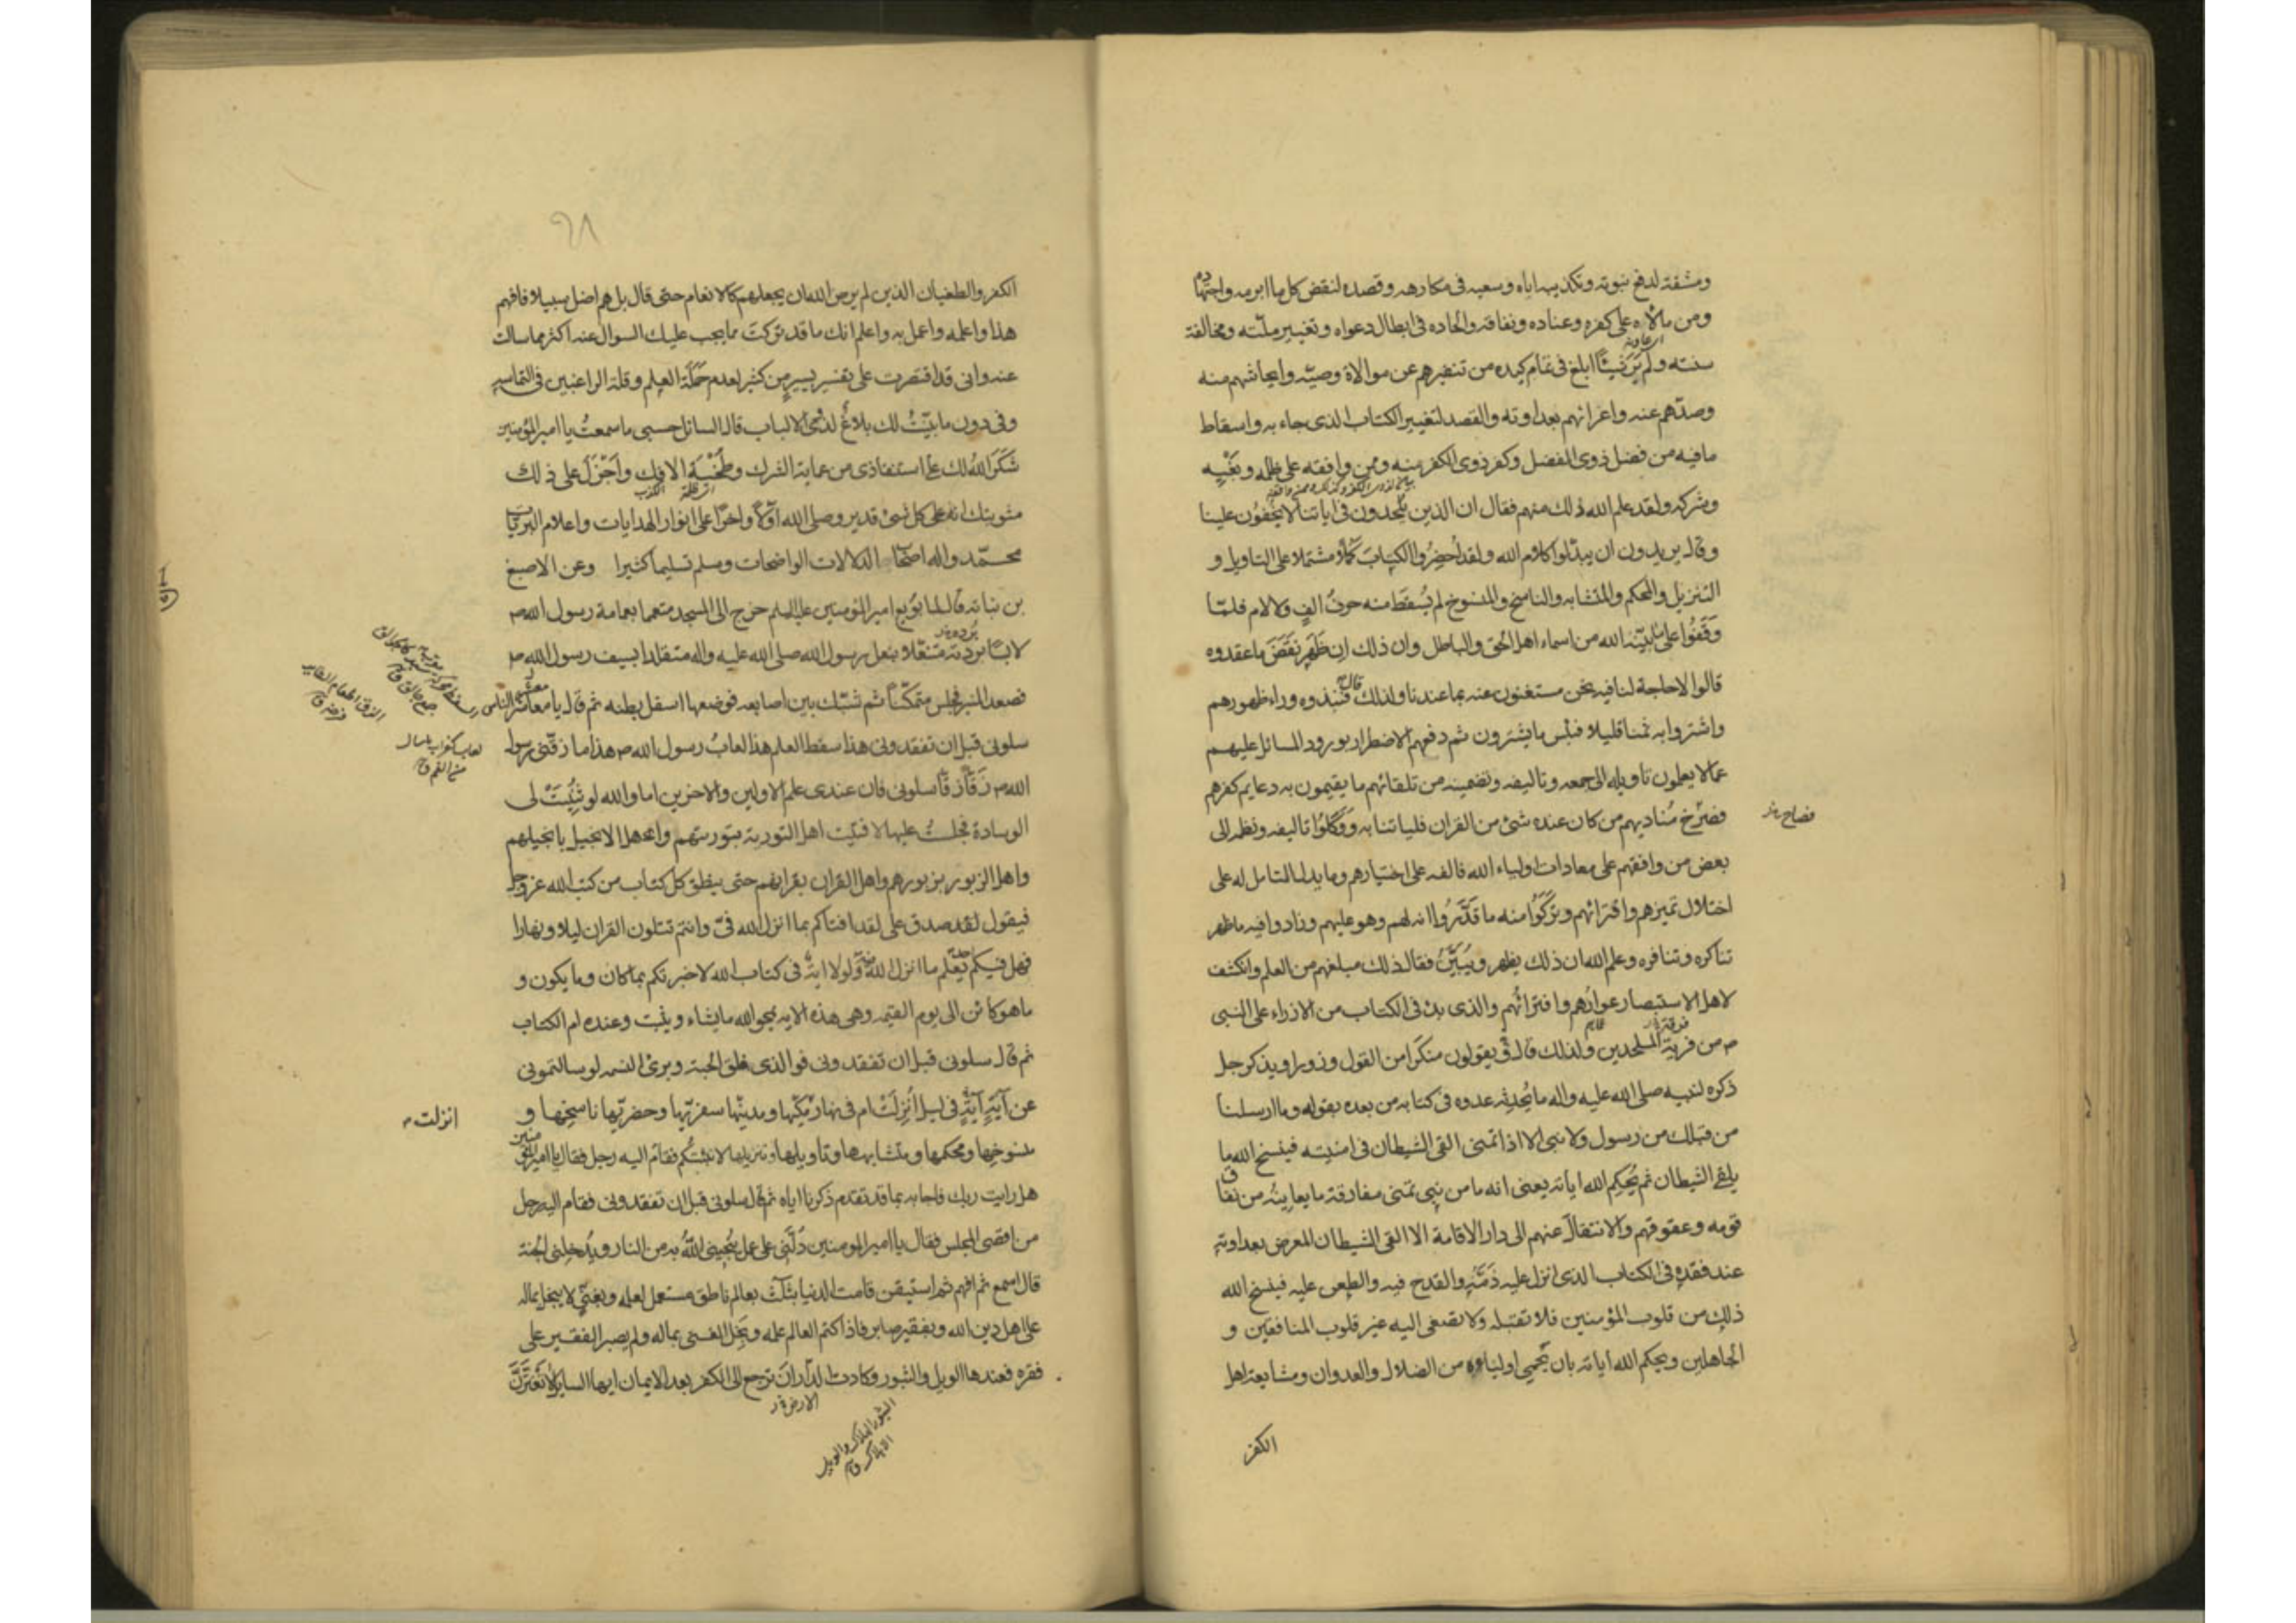 ومشقة لدفع نبوته وتكذيبه اياه وسعيه فى مكارهه وقصده لنقض كل ما ابرمه واجتهاده
ومن مالاه على كفره وعناده ونفاقه والحاده فى ابطال دعواه وتغيير ملته ومخالفة
سنته ولم ير شيئا ابلغ فى تمام كيده من تنفيرهم عن موالاة وصيه وايحاشهم منه
وصدهم عنه واغرائهم بعداوته والقصد لتغيير الكتاب الذى جاء به واسقاط
ما فيه من فضل ذوى الفضل وكفر ذوى الكفر منه وممن وافقه على ظلمه وبغيه
وشركه ولقد علم الله ذلك منهم فقال ان الذين يلحدون فى اياتنا لا يخفون علينا
وقال يريدون ان يبدلوا كلام الله ولقد احضروا الكتاب كملا مشتملا على التاويل و
التنزيل والمحكم والمتشابه والناسخ والمنسوخ لم يسقط منه حرف الف ولا لام فلما
وقفوا على ما بينه الله من اسماء اهل الحق والباطل وان ذلك ان ظهر نقض ما عقدوه
قالوا لا حاجة لنا فيه نحن مستغنون عنه بما عندنا ولذلك قال فنبذوه وراء ظهورهم
واشتروا به ثمنا قليلا فبئس ما يشترون ثم دفعهم الاضطرار بورود المسائل عليهم
عما لا يعلمون تاويله الى جمعه وتاليفه وتضمينه من تلقائهم ما يقيمون به دعايم كفرهم
فصرخ مناديهم من كان عنده شئ من القران فلياتنا به ووكلوا تاليفه ونظمه الى
فصاح
بعض من وافقهم على معادات اولياء الله فالفه على اختيارهم وما يدل التامل له على
اختلال تميزهم وافترائهم وتركوا منه ما قدروا انه لهم وهو عليهم وزادوا فيه ما ظهر
تناكره وتنافره وعلم الله ان ذلك يظهر ويبين فقال ذلك مبلغهم من العلم وانكشف
لاهل الاستبصار عوارهم وافترائهم والذى بدئ فى الكتاب من الازراء على النبى
ص من فرية الملحدين ولذلك قال يقولون منكرا من القول وزورا ويذكر جل
ذكره لنبيه صلى الله عليه واله ما يحدثه عدوه فى كتابه من بعده بقوله وما ارسلنا
من قبلك من رسول ولا نبى الا اذا تمنى القى الشيطان فى امنيته فينسخ الله ما
يلقى الشيطان ثم يحكم الله اياته يعنى انه ما من نبى تمنى مفارقة ما يعاينه من نفاق
قومه وعقوقهم والانتقال عنهم الى دار الاقامة الا القى الشيطان المعرض بعداوته
عند فقده فى الكتاب الذى انزل عليه ذمه والقدح فيه والطعن عليه فينسخ الله
ذلك من قلوب المؤمنين فلا تقبله ولا تصغى اليه غير قلوب المنافقين و
الجاهلين ويحكم الله اياته بان يحمى اولياءه من الضلال والعدوان ومشايعة اهل
الكفر
الكفر والطغيان الذين لم يرض الله ان يجعلهم كالانعام حتى قال بل هم اضل سبيلا فافهم
هذا واعلمه واعمل به واعلم انك ما قد تركت مما يجب عليك السوال عنه اكثر مما سالت
عنه وانى قد اقتصرت على تفسير يسير من كثير لعدم حملة العلم وقلة الراغبين فى التماسه
وفى دون ما بينت لك بلاغ لذوى الالباب قال السائل حسبى ما سمعت يا امير المؤمنين
شكر الله لك على استنقاذى من عماية الشرك وطخية الافك واجزل على ذلك
مثوبتك انه على كل شئ قدير وصلى الله اولا واخرا على انوار الهدايات واعلام البريات
محمد واله اصحاب الدلالات الواضحات وسلم تسليما كثيرا وعن الاصبغ
بن نباته قال لما بويع امير المؤمنين عليه السلم خرج الى المسجد متعمما بعمامة رسول الله ص
لابسا بردته متنعلا بنعل رسول الله صلى الله عليه واله متقلدا بسيف رسول الله ص
فصعد المنبر فجلس متمكنا ثم شبك بين اصابعه فوضعها اسفل بطنه ثم قال يا معاشر الناس
سلونى قبل ان تفقدونى هذا سفط العلم هذا لعاب رسول الله ص هذا ما زقنى رسول
الله ص زقا زقا سلونى فان عندى علم الاولين والاخرين اما والله لو ثنيت لى
الوسادة فجلست عليها لافتيت اهل التورية بتوريتهم واهل الانجيل بانجيلهم
واهل الزبور بزبورهم واهل القران بقرانهم حتى ينطق كل كتاب من كتب الله عز وجل
فيقول لقد صدق على لقد افتاكم بما انزل الله فى وانتم تتلون القران ليلا ونهارا
فهل فيكم احد يعلم ما انزل الله فيه ولولا اية فى كتاب الله لاخبرتكم بما كان وما يكون و
ما هو كائن الى يوم القيمة وهى هذه الاية يمحو الله ما يشاء ويثبت وعنده ام الكتاب
ثم قال سلونى قبل ان تفقدونى فوالذى فلق الحبة وبرئ النسمه لو سالتمونى
عن آية آية فى ليل انزلت ام فى نهار مكيها ومدنيها سفريها وحضريها ناسخها و
انزلت
منسوخها ومحكمها ومتشابهها وتاويلها وتنزيلها لانبئتكم فقام اليه رجل فقال يا امير المؤمنين
هل رايت ربك فاجابه بما قد تقدم ذكرنا اياه ثم قال سلونى قبل ان تفقدونى فقام اليه رجل
من اقصى المجلس فقال يا امير المومنين دلنى على عمل ينجينى الله به من النار ويدخلنى الجنة
قال اسمع ثم افهم ثم استيقن قامت الدنيا بثلث بعالم ناطق مستعمل لعلمه وبغنى لا يبخل بماله
على اهل دين الله وبفقير صابر فاذا كتم العالم علمه وبخل الغنى بماله ولم يصبر الفقير على
فقره فعندها الويل والثبور وكادت الدار ان ترجع الى الكفر بعد الايمان ايها السايل لا تغترن
الارض
الثبور الهلاك والويل